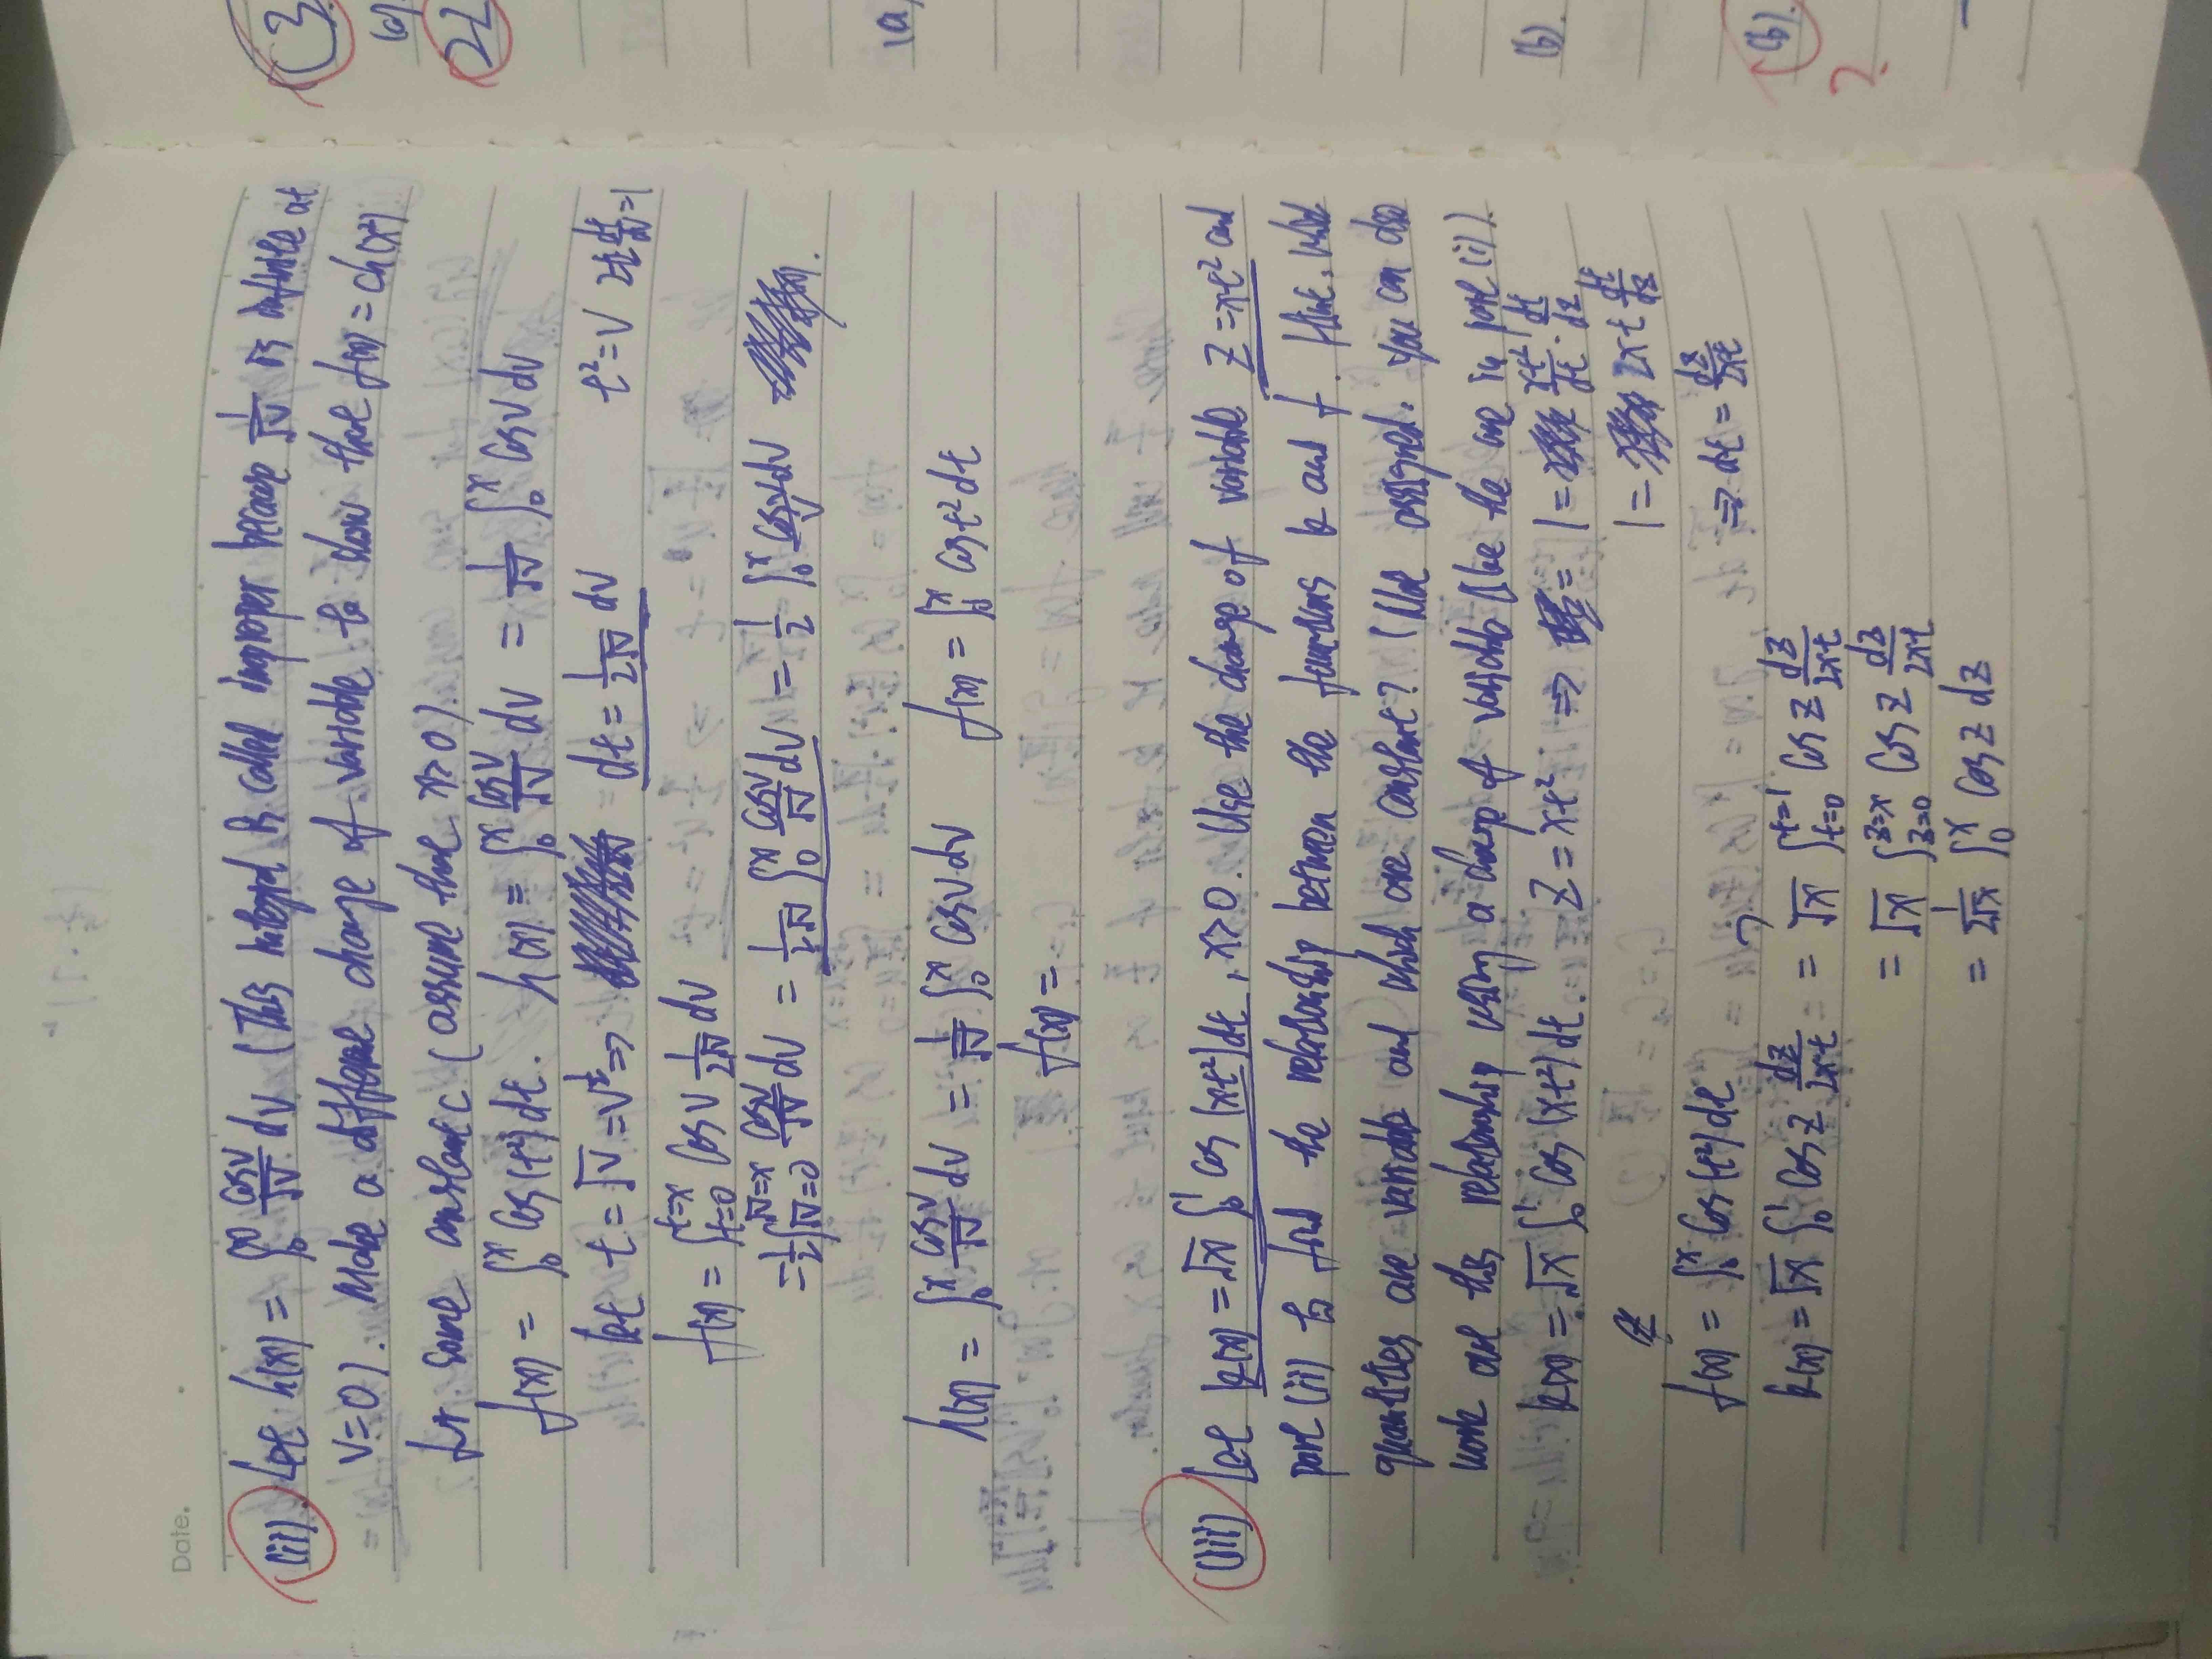 Date.
(ii). Let h(x) = ∫₀ˣ cosv/√v dv (This integral is called improper because 1/√v is infinite at
v=0). Make a different change of variable to show that f(x) = ch(x²)
for some constant c (assume that x>0).
f(x) = ∫₀ˣ cos(t²)dt. h(x) = ∫₀ˣ cosv/√v dv = 1/√v ∫₀ˣ cosv dv
let t = √v = v^½ ⇒ dt = 1/2√v dv t²=v 2t dt/dv=1
f(x) = ∫ₜ₌₀ᵗ⁼ˣ cosv 1/2√v dv
= ½∫_{√v=0}^{√v=x} cosv/√v dv = 1/2√v ∫₀ˣ cosv/√v dv = ½ ∫₀ˣ cosv/√v dv
h(x) = ∫₀ˣ cosv/√v dv = 1/√v ∫₀ˣ cosv dv f(x) = ∫₀ˣ cost²dt
f(x) =
(iii) Let k(x) = √x ∫₀¹ cos(xt²)dt, x>0. Use the change of variable z=xt² and
part (ii) to find the relationship between the functions k and f. (Hint: what
quantities are variable and which are constant?) (Not assigned: You can also
work out this relationship using a change of variable like the one in part (i)).
k(x) = √x ∫₀¹ cos(xt²)dt. z = xt² ⇒ = 1 = xt²/dt · dt/dz
1 = 2xt dt/dz
f(x) = ∫₀ˣ cos(t²)dt ⇒ dt = dz/2xt
k(x) = √x ∫₀¹ cosz dz/2xt = √x ∫ₜ₌₀ᵗ⁼¹ cosz dz/2xt
= √x ∫_{z=0}^{z=x} cosz dz/2xt
= 1/2√x ∫₀ˣ cosz dz
(3
(a).
21
1a)
(b).
(b).
2.